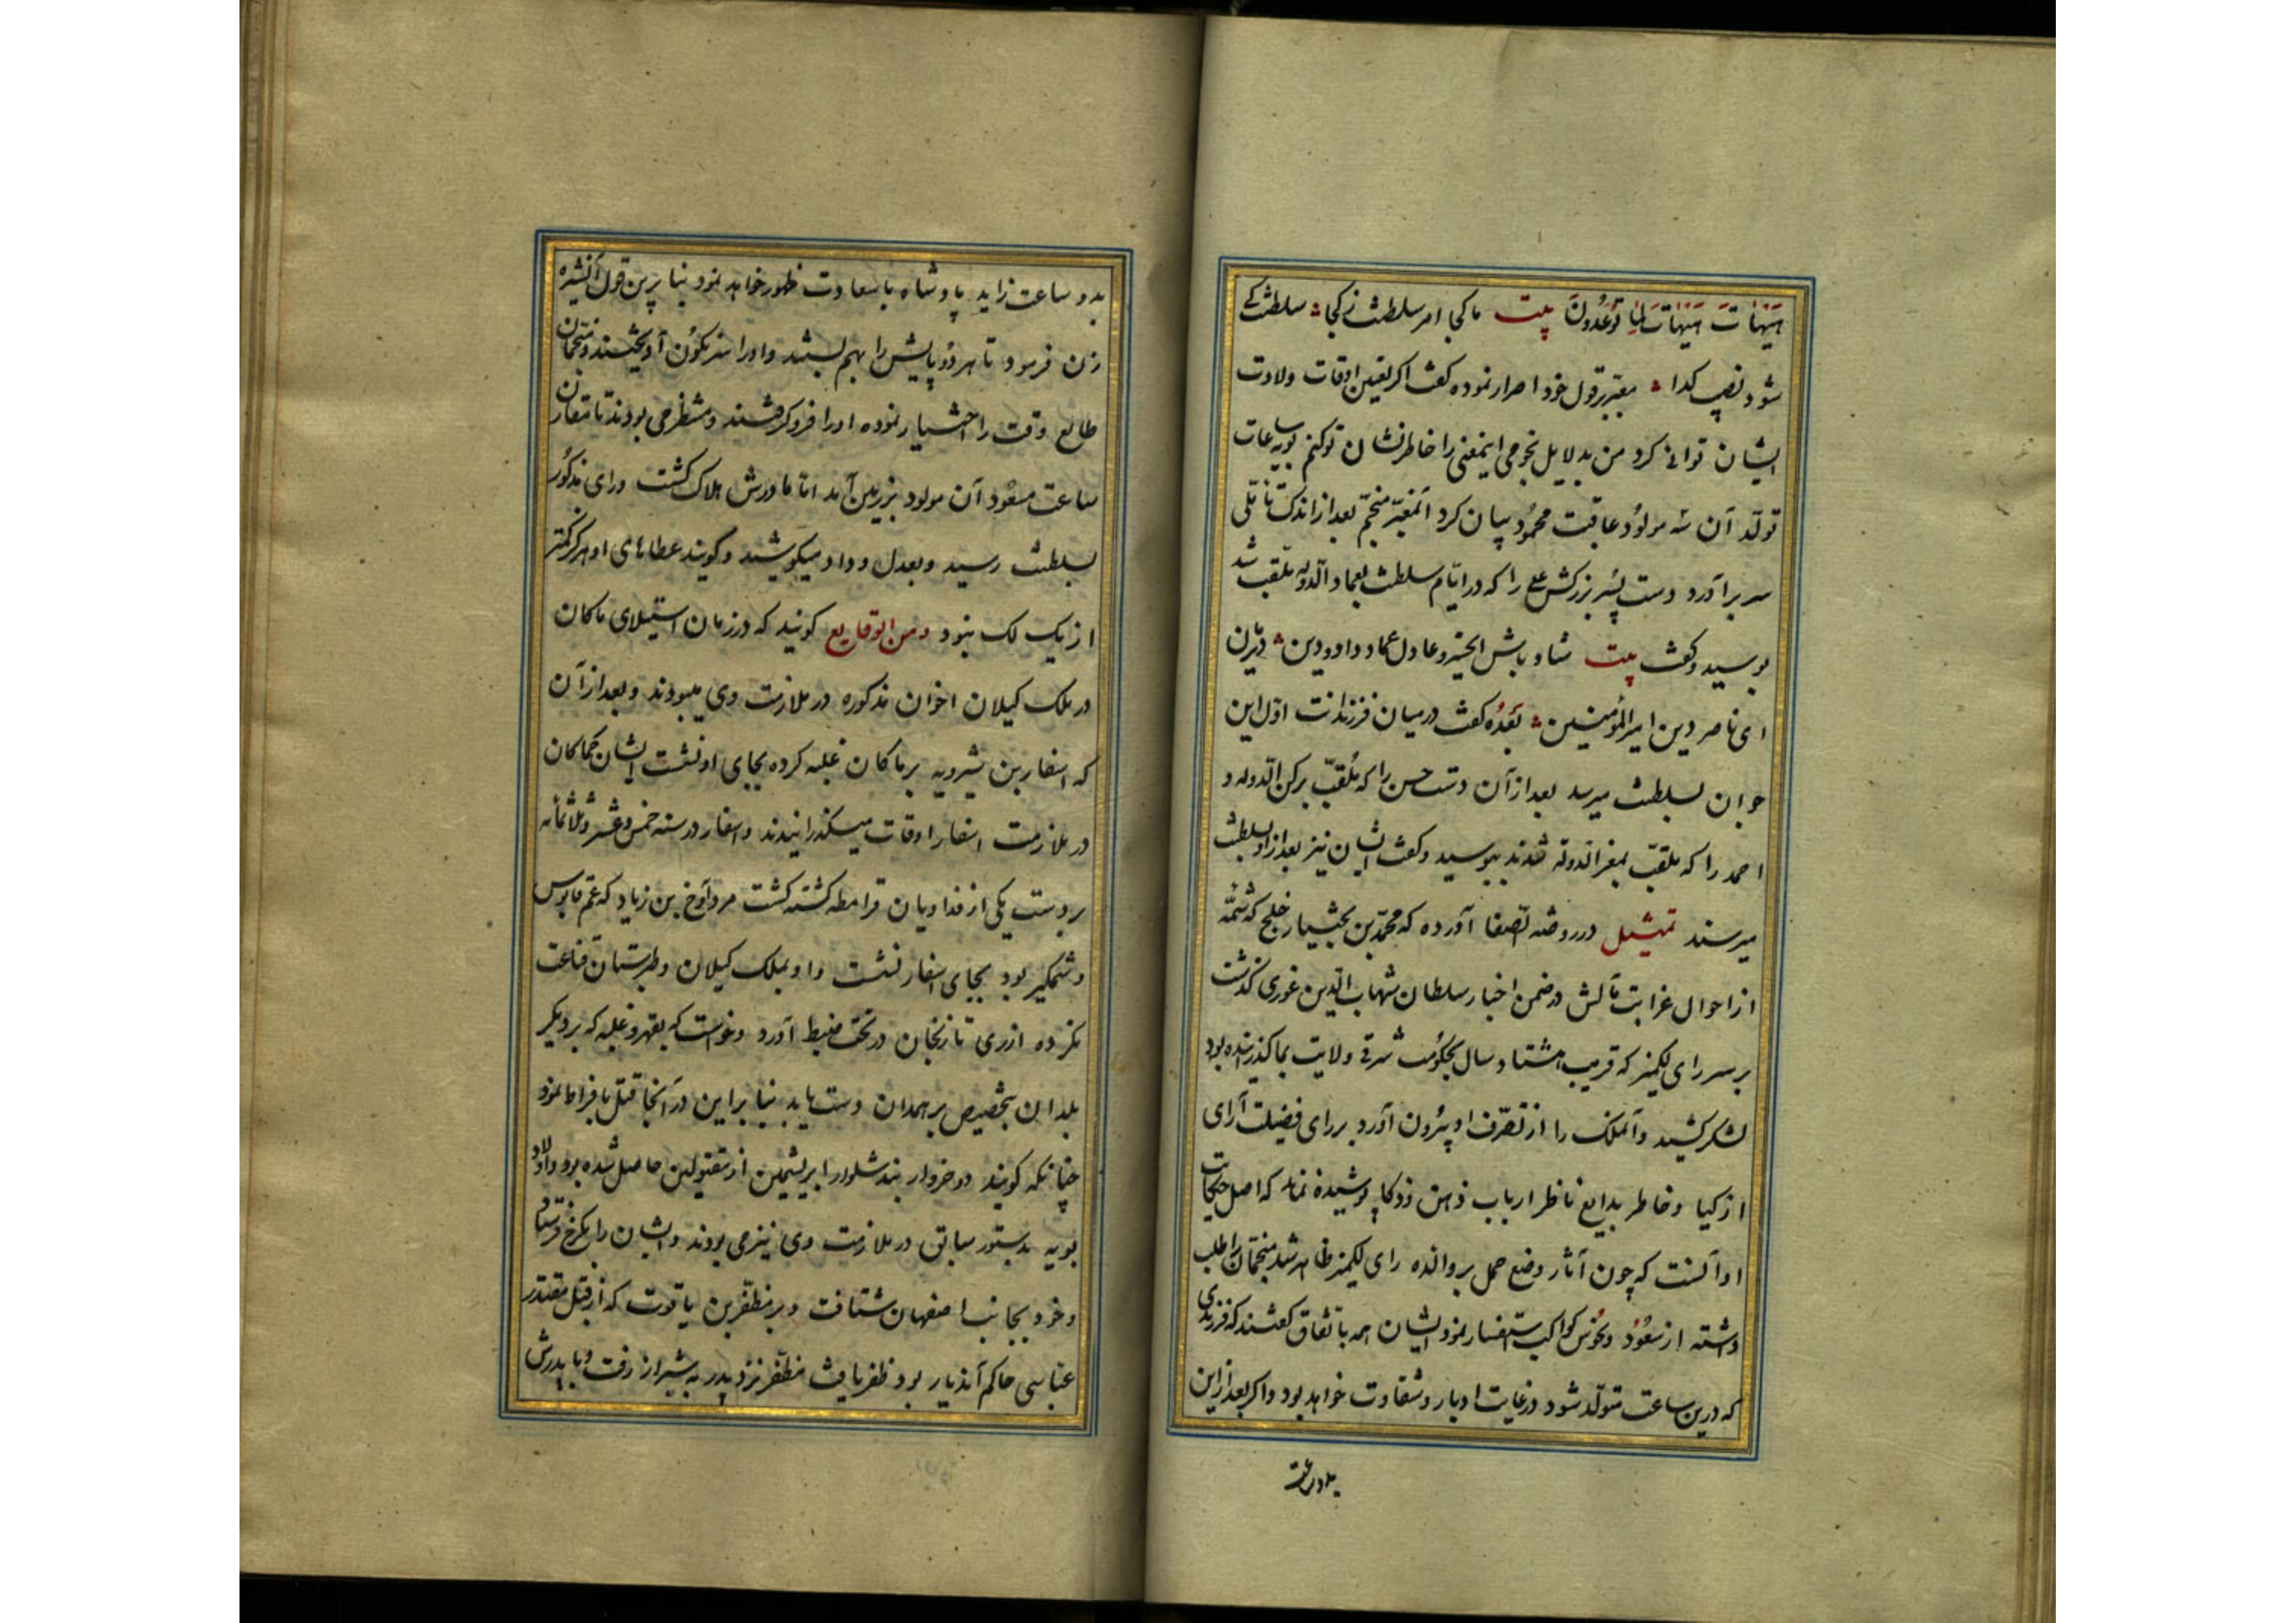 هَیْهَاتَ هَیْهَاتَ لِمَا تُوعَدُونَ بیت ما کجا امر سلطنت ز کجا سلطنت کے
شود نصیب کدا معبّر بر قول خود اصرار نموده کفت اکر تعین اوقات ولادت
ایشان توانے کرد من بدلایل نجومی اینمعنی را خاطرنشان تو کنم بویه ساعات
تولّد آن سه مولوُد عاقبت محموُد بیان کرد آنمعبّر منجّم بعد از اندک تامّلی
سر برآورد دست پسر بزرکش علے را که در ایّام سلطنت بعماد الدّوله ملقّب شد
بوسید و کفت بیت شاد باش ای خسرو عادل عماد داد و دین دیر زن
ای ناصر دین امیر المؤمنین بَعْدُه کفت در میان فرزندانت اوّل این
جوان بسلطنت میرسد بعد از آن دست حسن را که مُلقّب برکن الدّوله و
احمد را که ملقّب بمعز الدّوله شدند ببوسید و کفت ایشان نیز بعد از او بسلطنت
میرسند تمثیل در روضه الصّفا آورده که محمّد بن بختیار خلج که شمّه
از احوال غرابت مآلش در ضمن اخبار سلطان شهاب الدّین غوری کذشت
بر سر رای لکمیز که قریب هشتاد سال بحکوُمت شرقے ولایت بما کذرانیده بود
لشکر کشید و آنملک را از تصّرف او بیُرون آورد بر رای فضیلت آرای
ازکیا و خاطر بدایع ناظر ارباب ذهن و ذکا پوشیده نماند که اصل حکایت
او آنست که چون آثار وضع حمل بر والده رای لکمیز ظاهر شد منجّمان را طلب
داشته از سعُوُد و نحُوُس کواکب استفسار نمود ایشان همه باتّفاق کفتند که فرزندی
که درین ساعت متولّد شود در غایت ادبار و شقاوت خواهد بود و اکر بعد از این
بدو ساعت
بدو ساعت زاید پادشاه باسعادت ظهور خواهد نمود بنا برین قول آنشیره
زن فرمود تا هر دوُ پایش را بهم بستند و او را سر نکوُن آویختند و منجّمان
طالع وقت را احتیار نموده او را فرو کرفتند و منتظر می بودند تا مقارن
ساعت مسعوُد آن مولود بزمین آمد امّا مادرش هلاک کشت و رای مذکوُر
بسلطنت رسید و بعدل و داد میکوشید و کویند عطاهای او هرکز کمتر
از یک لک نبود و من الوقایع کویند که در زمان استیلای ماکان
در ملک کیلان اخوان مذکوره در ملازمت وی میبودند و بعد از آن
که اسفار بن شیرویه بر ماکان غلبه کرده بجای او نشست ایشان کماکان
در ملازمت اسفار اوقات میکذرانیدند و اسفار در سنه خمس و عشر و ثلاثمائه
بر دست یکی از فداویان قرامطه کشته کشت مرداوج بن زیاد که عم قابوس
وشمکیر بود بجای اسفار نشست و او بملک کیلان و طبرستان قناعت
نکرده از ری تا زنجان در تحت ضبط آورد و خواست که بقهر و غلبه که بر دیکر
بلدان بتخصیص بر همدان دست یابد بنا براین در آنجا قتل بافراط نمود
چنانکه کویند دو خروار بند شلوار ابریشمین از مقتولین حاصل شده بود و اولاد
بویه بدستور سابق در ملازمت وی نیز می بودند و ایشان را بکرخ فرستاد
و خود بجانب اصفهان شتافت و بر مظفّر بن یاقوت که از قبل مقتدر
عبّاسی حاکم آندیار بود ظفر یافت مظفّر نزد پدر به شیراز رفت و با پدرش